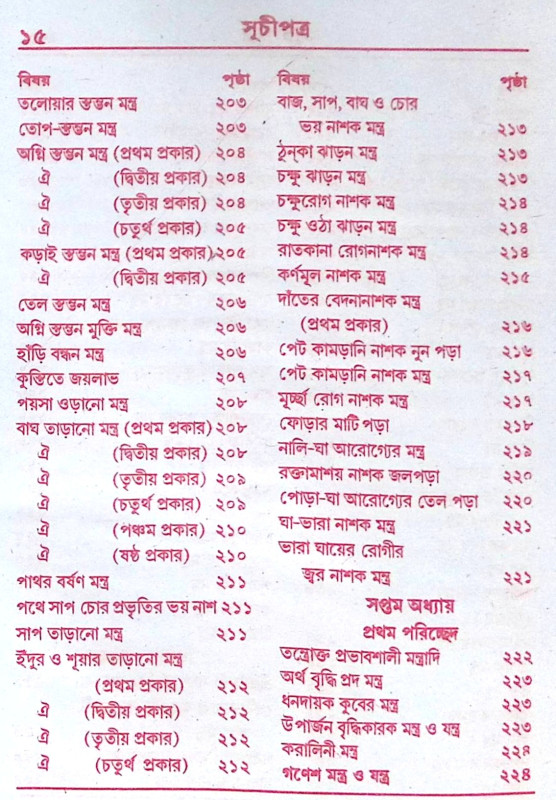 ১৫ সূচীপত্র
বিষয় পৃষ্ঠা
তলোয়ার স্তম্ভন মন্ত্র ২০৩
তোপ-স্তম্ভন মন্ত্র ২০৩
অগ্নি স্তম্ভন মন্ত্র (প্রথম প্রকার) ২০৪
ঐ (দ্বিতীয় প্রকার) ২০৪
ঐ (তৃতীয় প্রকার) ২০৪
ঐ (চতুর্থ প্রকার) ২০৫
কড়াই স্তম্ভন মন্ত্র (প্রথম প্রকার) ২০৫
ঐ (দ্বিতীয় প্রকার) ২০৫
তেল স্তম্ভন মন্ত্র ২০৬
অগ্নি স্তম্ভন মুক্তি মন্ত্র ২০৬
হাঁড়ি বন্ধন মন্ত্র ২০৬
কুস্তিতে জয়লাভ ২০৭
পয়সা ওড়ানো মন্ত্র ২০৮
বাঘ তাড়ানো মন্ত্র (প্রথম প্রকার) ২০৮
ঐ (দ্বিতীয় প্রকার) ২০৮
ঐ (তৃতীয় প্রকার) ২০৯
ঐ (চতুর্থ প্রকার) ২০৯
ঐ (পঞ্চম প্রকার) ২১০
ঐ (ষষ্ঠ প্রকার) ২১০
পাথর বর্ষণ মন্ত্র ২১১
পথে সাপ চোর প্রভৃতির ভয় নাশ ২১১
সাপ তাড়ানো মন্ত্র ২১১
ইঁদুর ও শূয়ার তাড়ানো মন্ত্র
(প্রথম প্রকার) ২১২
ঐ (দ্বিতীয় প্রকার) ২১২
ঐ (তৃতীয় প্রকার) ২১২
ঐ (চতুর্থ প্রকার) ২১২
বিষয় পৃষ্ঠা
বাজ, সাপ, বাঘ ও চোর
ভয় নাশক মন্ত্র ২১৩
ঠুন্‌কা ঝাড়ন মন্ত্র ২১৩
চক্ষু ঝাড়ন মন্ত্র ২১৩
চক্ষুরোগ নাশক মন্ত্র ২১৪
চক্ষু ওঠা ঝাড়ন মন্ত্র ২১৪
রাতকানা রোগনাশক মন্ত্র ২১৪
কর্ণমূল নাশক মন্ত্র ২১৫
দাঁতের বেদনানাশক মন্ত্র
(প্রথম প্রকার) ২১৬
পেট কামড়ানি নাশক নুন পড়া ২১৬
পেট কামড়ানি নাশক মন্ত্র ২১৭
মূর্চ্ছা রোগ নাশক মন্ত্র ২১৭
ফোড়ার মাটি পড়া ২১৮
নালি-ঘা আরোগ্যের মন্ত্র ২১৯
রক্তামাশয় নাশক জলপড়া ২২০
পোড়া-ঘা আরোগ্যের তেল পড়া ২২০
ঘা-ভারা নাশক মন্ত্র ২২১
ভারা ঘায়ের রোগীর
জ্বর নাশক মন্ত্র ২২১
সপ্তম অধ্যায়
প্রথম পরিচ্ছেদ
তন্ত্রোক্ত প্রভাবশালী মন্ত্রাদি ২২২
অর্থ বৃদ্ধি প্রদ মন্ত্র ২২৩
ধনদায়ক কুবের মন্ত্র ২২৩
উপার্জন বৃদ্ধিকারক মন্ত্র ও যন্ত্র ২২৩
করালিনী মন্ত্র ২২৪
গণেশ মন্ত্র ও যন্ত্র ২২৪